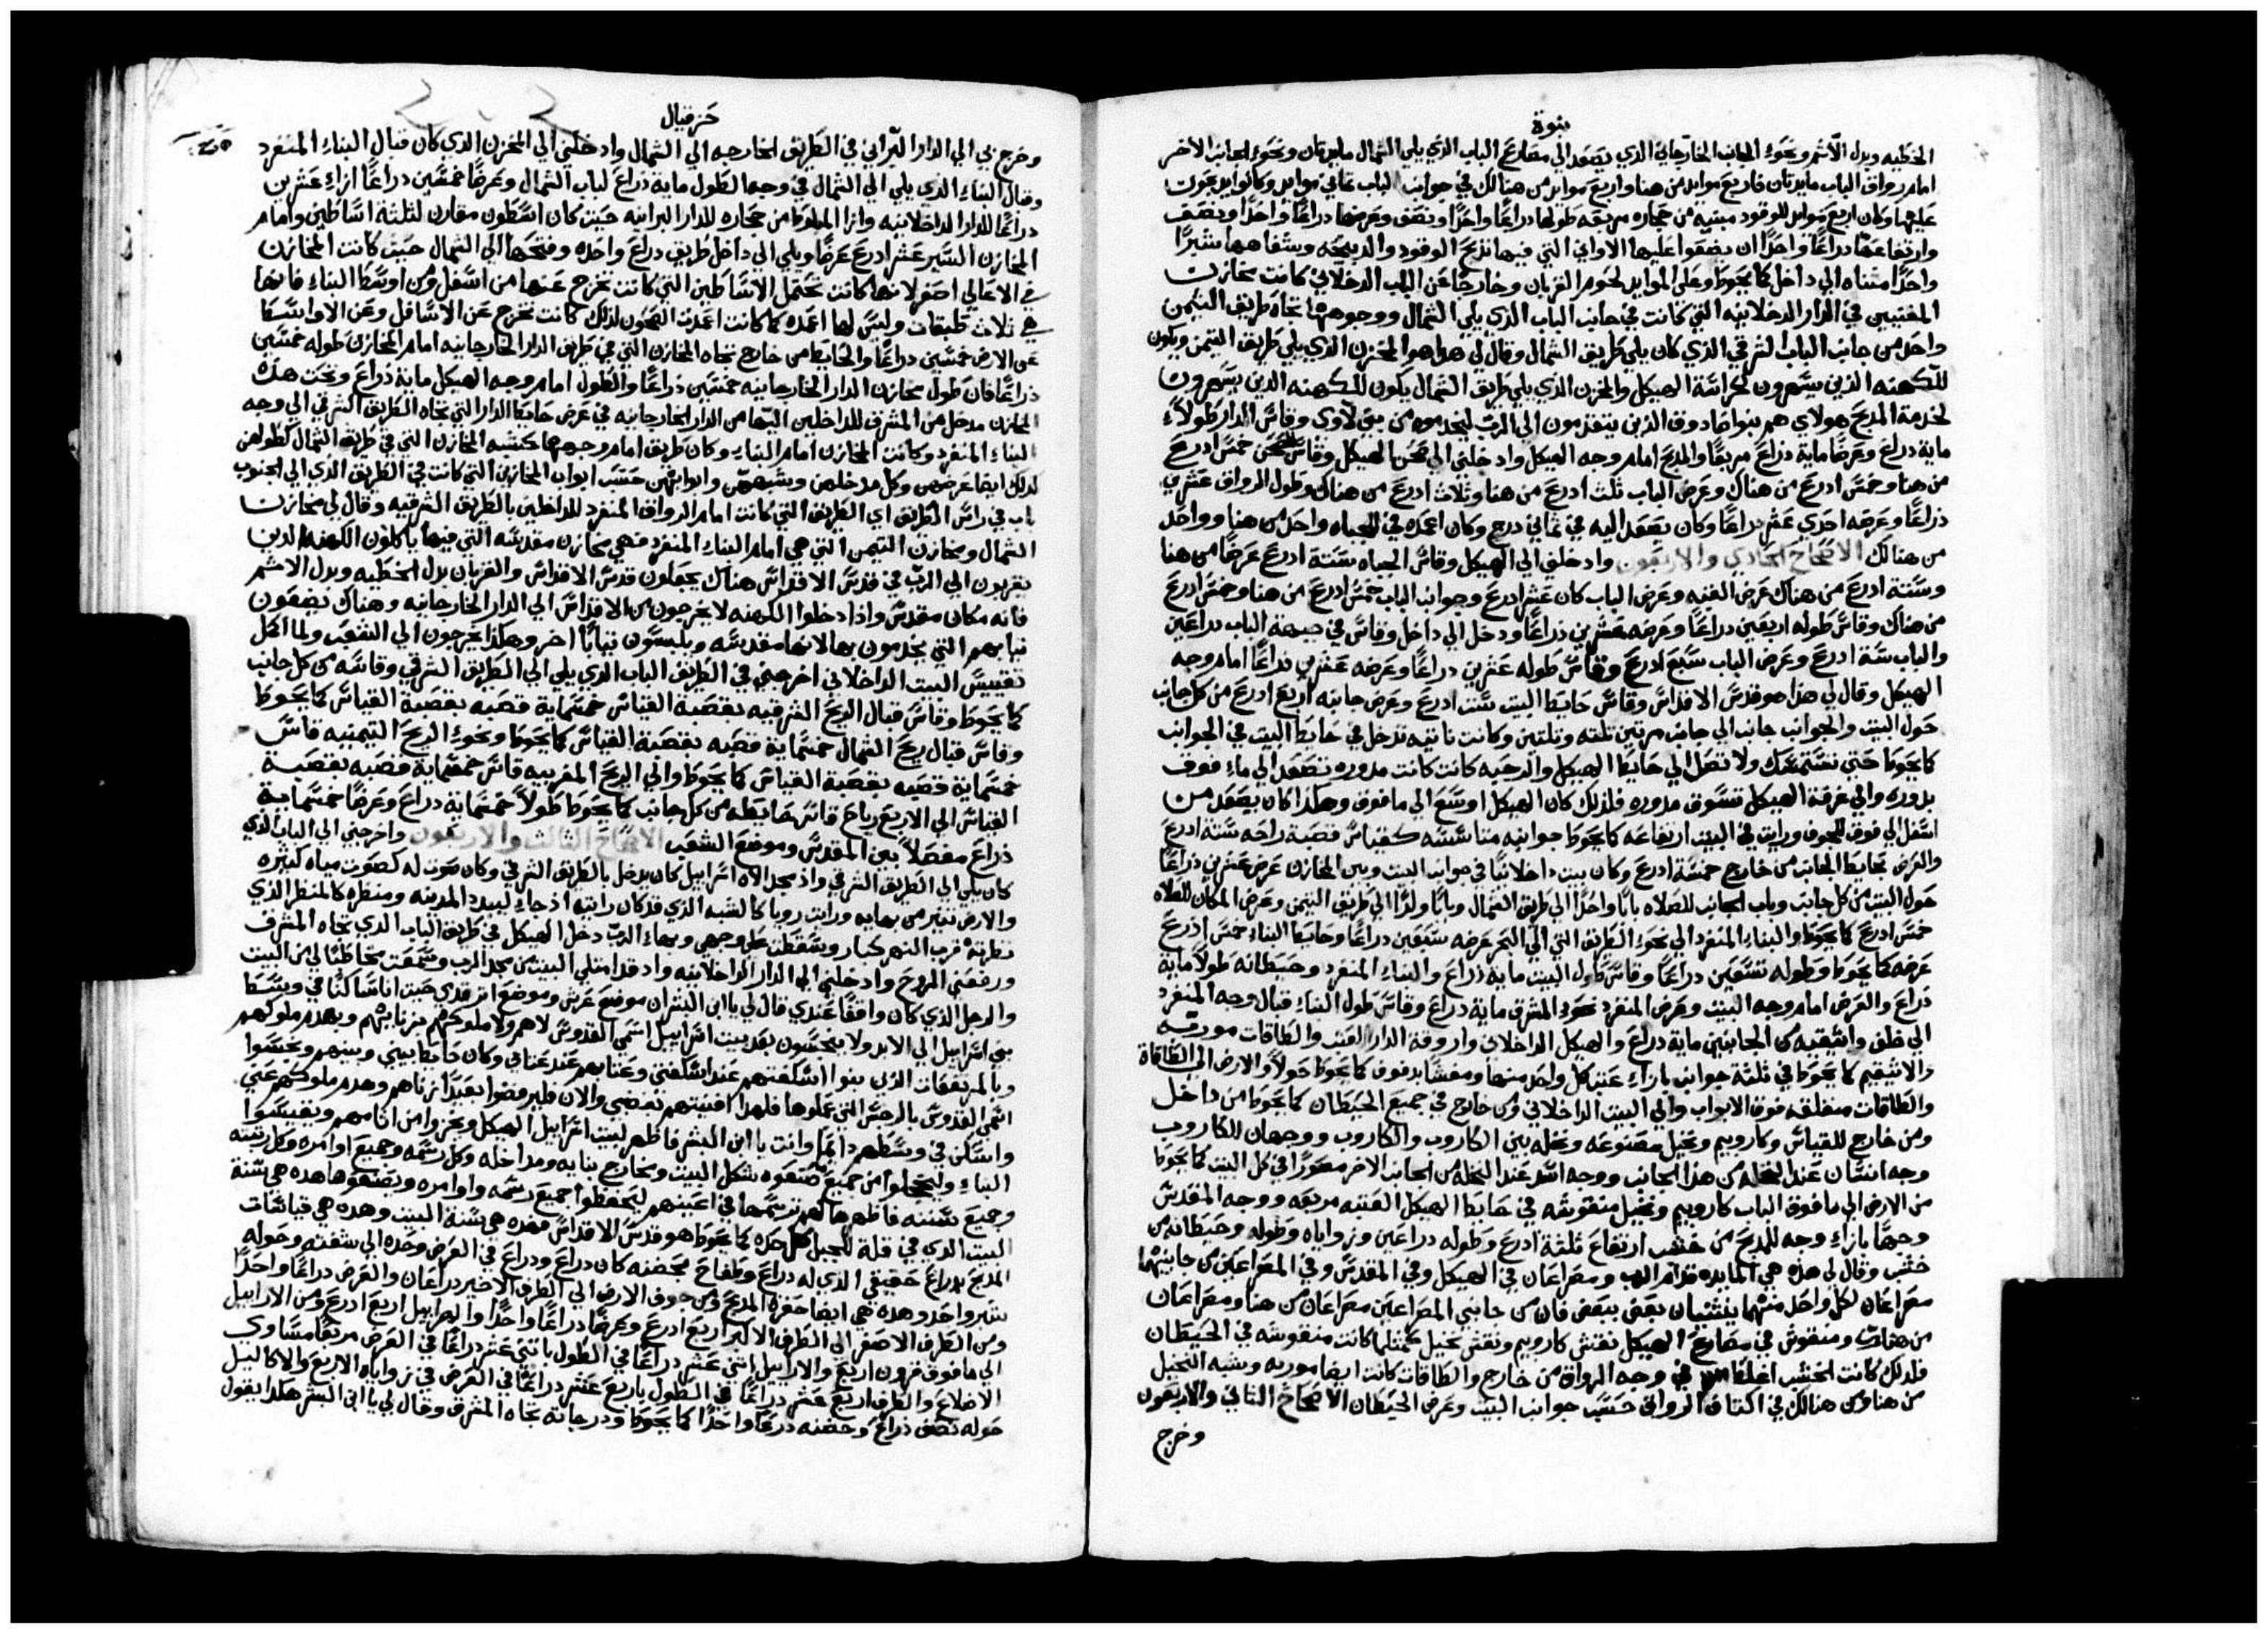 نبوة
الخطيه وبدل الاثم ونحو الجانب الخارجاني الذي يصعد الي مصارع الباب الذي يلي الشمال مايدتان ونحو الجانب الاخر
امام رواق الباب مايدتان فاربع موايد من هنا واربع موايد من هنالك في جوانب الباب ثماني موايد وكانوا يدبحون
عليها وكان اربع موايد للوقود مبنيه من حجاره مربعه طولها دراعًا واحدًا ونصف وعرضها دراعًا واحدًا ونصف
وارتفاعها دراعًا واحدًا ان يضعوا عليها الاواني التي فيها تذبح الوقود والدبيحه وشفاهها شبرًا
واحدًا مثناه الي داخل كما يحوط وعلي الموايد لحوم القربان وخارجًا عن الباب الدخلاني كانت مخازن
المغنيين في الدار الدخلانيه التي كانت في جانب الباب الذي يلي الشمال ووجوهها تجاه طريق التيمن
واحد من جانب الباب الشرقي الذي كان يلي طريق الشمال وقال لي هدا هو المخزن الذي يلي طريق التيمن ويكون
للكهنه الذين يسهرون لحراسة الهيكل والمخزن الذي يلي طريق الشمال يكون للكهنه الدين يسهرون
لخدمة المدبح هولاي هم بنوا صادوق الذين يتقدمون الي الرب ليخدموه من بني لاوي وقاس الدار طولًا
ماية دراع وعرضًا ماية ذراع مربعًا والمدبح امام وجه الهيكل وادخلني الي صحن الهيكل وقاس الصحن خمس ادرع
من هنا وخمس ادرع من هناك وعرض الباب ثلث ادرع من هنا وثلاث ادرع من هناك وطول الرواق عشرين
ذراعًا وعرضه احدي عشر دراعًا وكان يصعد اليه في ثماني درج وكان اعمده في الجباه واحد من هنا وواحد
من هنالك الاصحاح الحادي والاربعون وادخلني الي الهيكل وقاس الجباه ستة ادرع عرضًا من هنا
وستة ادرع من هناك عرض القبه وعرض الباب كان عشر ادرع وجوانب الباب خمس ادرع من هنا وخمس ادرع
من هناك وقاس طوله اربعين دراعًا وعرضه عشرين ذراعًا ودخل الي داخل وقاس في جبهة الباب دراعين
والباب ستة ادرع وعرض الباب سبع ادرع وقاس طوله عشرين دراعًا وعرضه عشرين ذراعًا امام وجه
الهيكل وقال لي هذا هو قدس الاقداس وقاس حايط البيت ست ادرع وعرض جانبه اربع ادرع من كل جانب
حول البيت والجوانب جانب الي جانب مرتين ثلثه وثلثين وكانت ناتيه تدخل في حايط البيت في الجوانب
كما يحوط حتي تستمسك ولا تصل الي حايط الهيكل والرحبه كانت كانت مدوره تصعد الي ما فوق
بدوره والي غرفة الهيكل تسوق مدوره فلذلك كان الهيكل اوسع الي ما فوق وهكذا كان يصعد من
اسفل الي فوق للجوف ورايت في البيت ارتفاعه كما يحوط جوانبه مثاسسه كقياس قصبة راحه ستة ادرع
والعرض بحايط الجانب من خارج خمسة ادرع وكان بيت داخلانيًا في جوانب البيت وبين المخازن عرض عشرين ذراعًا
حول البيت من كل جانب وباب الجانب للصلاه بابًا واحدًا الي طريق الشمال وبابًا واحدًا الي طريق التيمن وعرض المكان للصلاه
خمس ادرع كما يحوط والبناء المنفرد الي نحو الطريق التي الي البحر عرضه سبعين دراعًا وحايط البناء خمس اذرع
عرضه كما يحوط وطوله تسعين دراعًا وقاس طول البيت ماية ذراع والبناء المنفرد وحيطانه طولًا ماية
ذراع والعرض امام وجه البيت وعرض المنفرد نحو المشرق ماية دراع وقاس طول البناء قبال وجه المنفرد
الي خلف واشقيه من الجانبين ماية دراع والهيكل الداخلاني واروقة الدار العتب والطاقات موربه
والاشقيه كما يحوط في ثلثة جوانب بازاء عتبة كل واحد منها ومغشا بدفوف كما يحوط حولًا والارض الي الطاقاة
والطاقات متغلقه فوق الابواب والي البيت الداخلاني ومن خارج في جميع الحيطان كما يحوط من داخل
ومن خارج للقياس وكاروبيم ونخيل مصنوعه ونخله بين الكاروب والكاروب ووجهان للكاروب
وجه انسان عند النخله من هذا الجانب ووجه اسد عند النخله من الجانب الاخر مصورًا في كل البيت كما يحوط
من الارض الي ما فوق الباب كاروبيم ونخيل منقوشه في حايط الهيكل العتبه مربعه ووجه المقدس
وجهًا بازاء وجه للمدبح من خشب ارتفاع ثلثة ادرع وطوله دراعين وزواياه وطوله وحيطانه من
خشب وقال لي هذه هي المايده قدام الرب ومصراعان في الهيكل وفي المقدس وفي المصراعين من جانبيهما
مصراعان لكل واحد منهما ينثنيان بعض ببعض فان من جانبي المصراعين مصراعان من هنا ومصراعان
من هناك ومنقوش في مصارع الهيكل نقش كاروبيم ونقش نخيل كمثلما كانت منقوشه في الحيطان
فلدلك كانت الخشب اغلظ في وجه الرواق من خارج والطاقات كانت ايضا موربه وشبه النخيل
من هنا ومن هنالك في اكتاف الرواق حسب جوانب البيت وعرض الحيطان الاصحاح التاني والاربعون
وخرج
حزقيال
وخرج بي الي الدار البراني في الطريق الخارجه الي الشمال وادخلني الي المخزن الدي كان قبال البناء المنفرد
وقبال البناء الذي يلي الي الشمال في وجه الطول ماية ذراع لباب الشمال وعرضًا خمسين دراعًا ازاء عشرين
دراعًا للدار الداخلانيه وازا البلاط من حجاره للدار البرانيه حيث كان اسطون مقارن لثلثة اساطين وامام
المخازن السير عشر ادرع عرضًا ويلي الي داخل طريق دراع واحده وفتحها الي الشمال حيث كانت المخازن
في الاعالي اصغر لانها كانت تحتمل الاساطين التي كانت تخرج عنها من اسفل ومن اوسط البناء فانها
هي ثلاث طبقات وليس لها اعمده كما كانت اعمدت الصحون لذلك كانت تخرج عن الاسافل وعن الاواسط
عن الارض خمسين دراعًا والحايط من خارج تجاه المخازن التي في طريق الدار الخارجانيه امام المخازن طوله خمسين
ذراعًا فان طول مخازن الدار الخارجانيه خمسين ذراعًا والطول امام وجه الهيكل ماية ذراع وتحت هذه
المخازن مدخل من المشرق للداخلين اليها من الدار الخارجانيه في عرض حايط الدار التي تجاه الطريق الشرقي الي وجه
البناء المنفرد وكانت المخازن امام البناء وكان طريق امام وجهها كشبه المخازن التي في طريق الشمال كطولهن
كدلك ايضا عرضهن وكل مدخلهن وشبههن وابوابهن حسب ابواب المخازن التي كانت في الطريق الذي الي الجنوب
باب في راس الطريق اي الطريق التي كانت امام الرواق المنفرد للداخلين بالطريق الشرقيه وقال لي مخازن
الشمال ومخازن التيمن التي هي امام البناء المنفرد فهي مخازن مقدسه التي فيها ياكلون الكهنه الدين
يقربون الي الرب في قدس الاقداس هناك يجعلون قدس الاقداس والقربان بدل الخطيه وبدل الاثم
فانه مكان مقدس واذا دخلوا الكهنه لا يخرجون من الاقداس الي الدار الخارجانيه وهناك يضعون
ثيابهم التي يخدمون بها لانها مقدسه ويلبسون ثيابًا اخر وهكذا يخرجون الي الشعب ولما اكمل
تقييس البيت الداخلاني اخرجني في الطريق الباب الذي يلي الي الطريق الشرقي وقاسه من كل جانب
كما يحوط وقاس قبال الريح الشرقيه بقصبة القياس خمسماية قصبه بقصبة القياس كما يحوط
وقاس قبال ريح الشمال خمسماية قصبه بقصبة القياس كما يحوط ونحو الريح التيمنيه قاس
خمسماية قصبه بقصبة القياس كما يحوط والي الريح المغربيه قاس خمسماية قصبه بقصبة
القياس الي الاربع رياح قاس حايطه من كل جانب كما يحوط طولًا خمسماية دراع وعرضًا خمسماية
ذراع مفصلًا بين المقدس وموضع الشعب الاصحاح الثالث والاربعون واخرجني الي الباب الذي
كان يلي الي الطريق الشرقي واذ مجد الاه اسراييل كان يدخل بالطريق الشرقي وكان صوت له كصوت مياه كثيره
والارض تنير من بهايه ورايت رويا كالشبه الذي قد كان رايته اذ جاء ليبدد المدينه ومنظره كالمنظر الذي
نظرته قرب النهر كبار وسقطت علي وجهي وبهاء الرب دخل الهيكل في طريق الباب الدي تجاه المشرق
ورفعني الروح وادخلني الي الدار الداخلانيه واد قد امتلي البيت من مجد الرب وسمعت مخاطبًا لي من البيت
والرجل الذي كان واقفًا عندي قال لي يا ابن البشر ان موضع عرشي وموضع اتر قدمي حيث انا ساكنًا في وسط
بني اسراييل الي الابد ولا ينجسون بعد بيت اسراييل اسمي القدوس لا هم ولا ملوكهم بزناهم وبهدم ملوكهم
وبالمرتفعات الذين بنوا اسكفتهم عند اسكفتي وعتابهم عند عتابي وكان حايط بيني وبينهم ونجسوا
اسمي القدوس بالرجس التي عملوها فلهذا افنيتهم بغضبي والان فليرفضوا بعيدًا زناهم وهدم ملوكهم عني
واسكن في وسطهم دايمًا وانت يا ابن البشر فاظهر لبيت اسراييل الهيكل ويخزوا من اثامهم ويقيسوا
البناء وليخجلوا من جميع ما صنعوه شكل البيت ومخارج بنايه ومداخله وكل رسمه وجميع اوامره وكل رتبته
وجميع سننه فاظهرها لهم ترسمها في اعينهم ليحفظوا جميع رسمه واوامره ويصنعوها هده هي سنة
البيت الدي في قلة الجبل كل حده كما يحوط هو قدس الاقداس فهذه هي سنة البيت وهده هي قياسات
المدبح بدراع حقيقي الذي له دراع وطفاح بحضنه كان دراع ودراع في العرض وحده الي شفته وحوله
شبر واحد وهده هي ايضا حفرة المدبح ومن جوف الارض الي الطرف الاخير دراعان والعرض دراعًا واحدًا
ومن الطرف الاصغر الي الطرف الاكبر اربع ادرع وعرضًا دراعًا واحدًا والهراييل اربع ادرع ومن الاراييل
الي ما فوق قرون اربع والاراييل اثني عشر دراعًا في الطول باثني عشر دراعًا في العرض مربعًا متساوي
الاضلاع والطرف اربع عشر دراعًا في الطول باربع عشر دراعًا في العرض في زواياه الاربع والاكاليل
حوله نصف ذراع وحضنه درعًا واحدًا كما يحوط ودرجاته تجاه المشرق وقال لي يا ابن البشر هكدا يقول